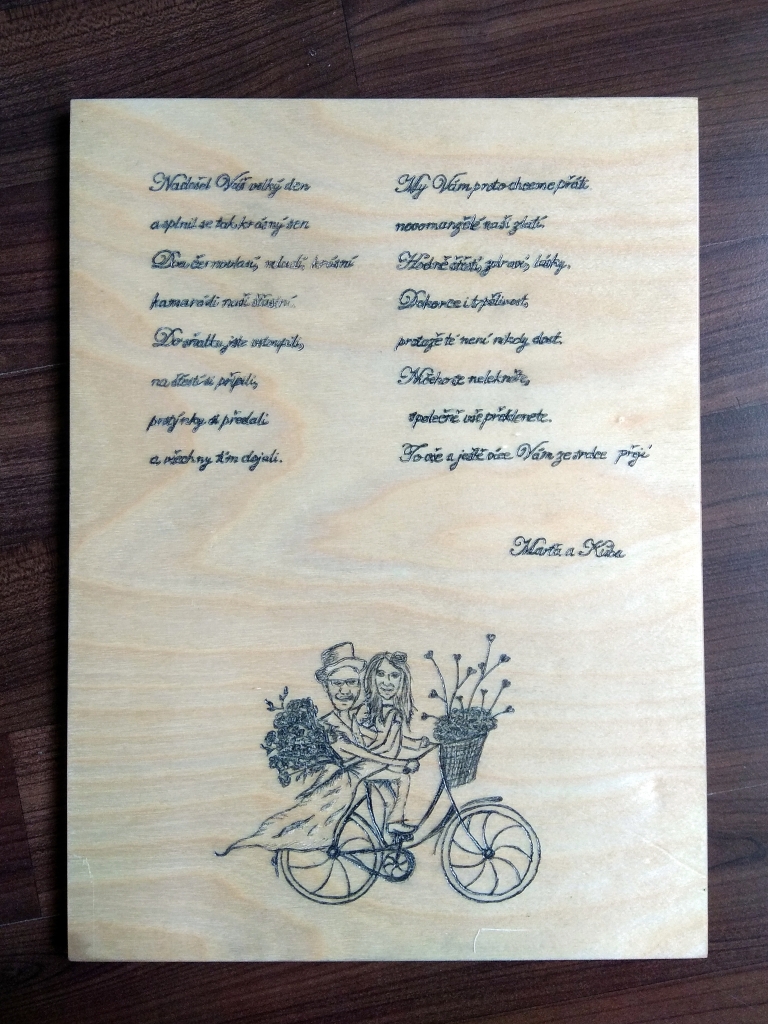 Nadešel Váš velký den
a splnil se tak krásný sen
Dva černovlasí, mladí, krásní
kamarádi naši šťastní.
Do sňatku jste vstoupili,
na štěstí si připili,
prstýnky si předali
a všechny tím dojali.
My Vám proto chceme přáti
novomanželé naši zlatí.
Hodně štěstí, zdraví, lásky,
Dokonce i trpělivost,
protože té není nikdy dost.
Ničeho se nelekněte,
společně vše překlenete.
To vše a ještě více Vám ze srdce přejí
Marťa a Kuba